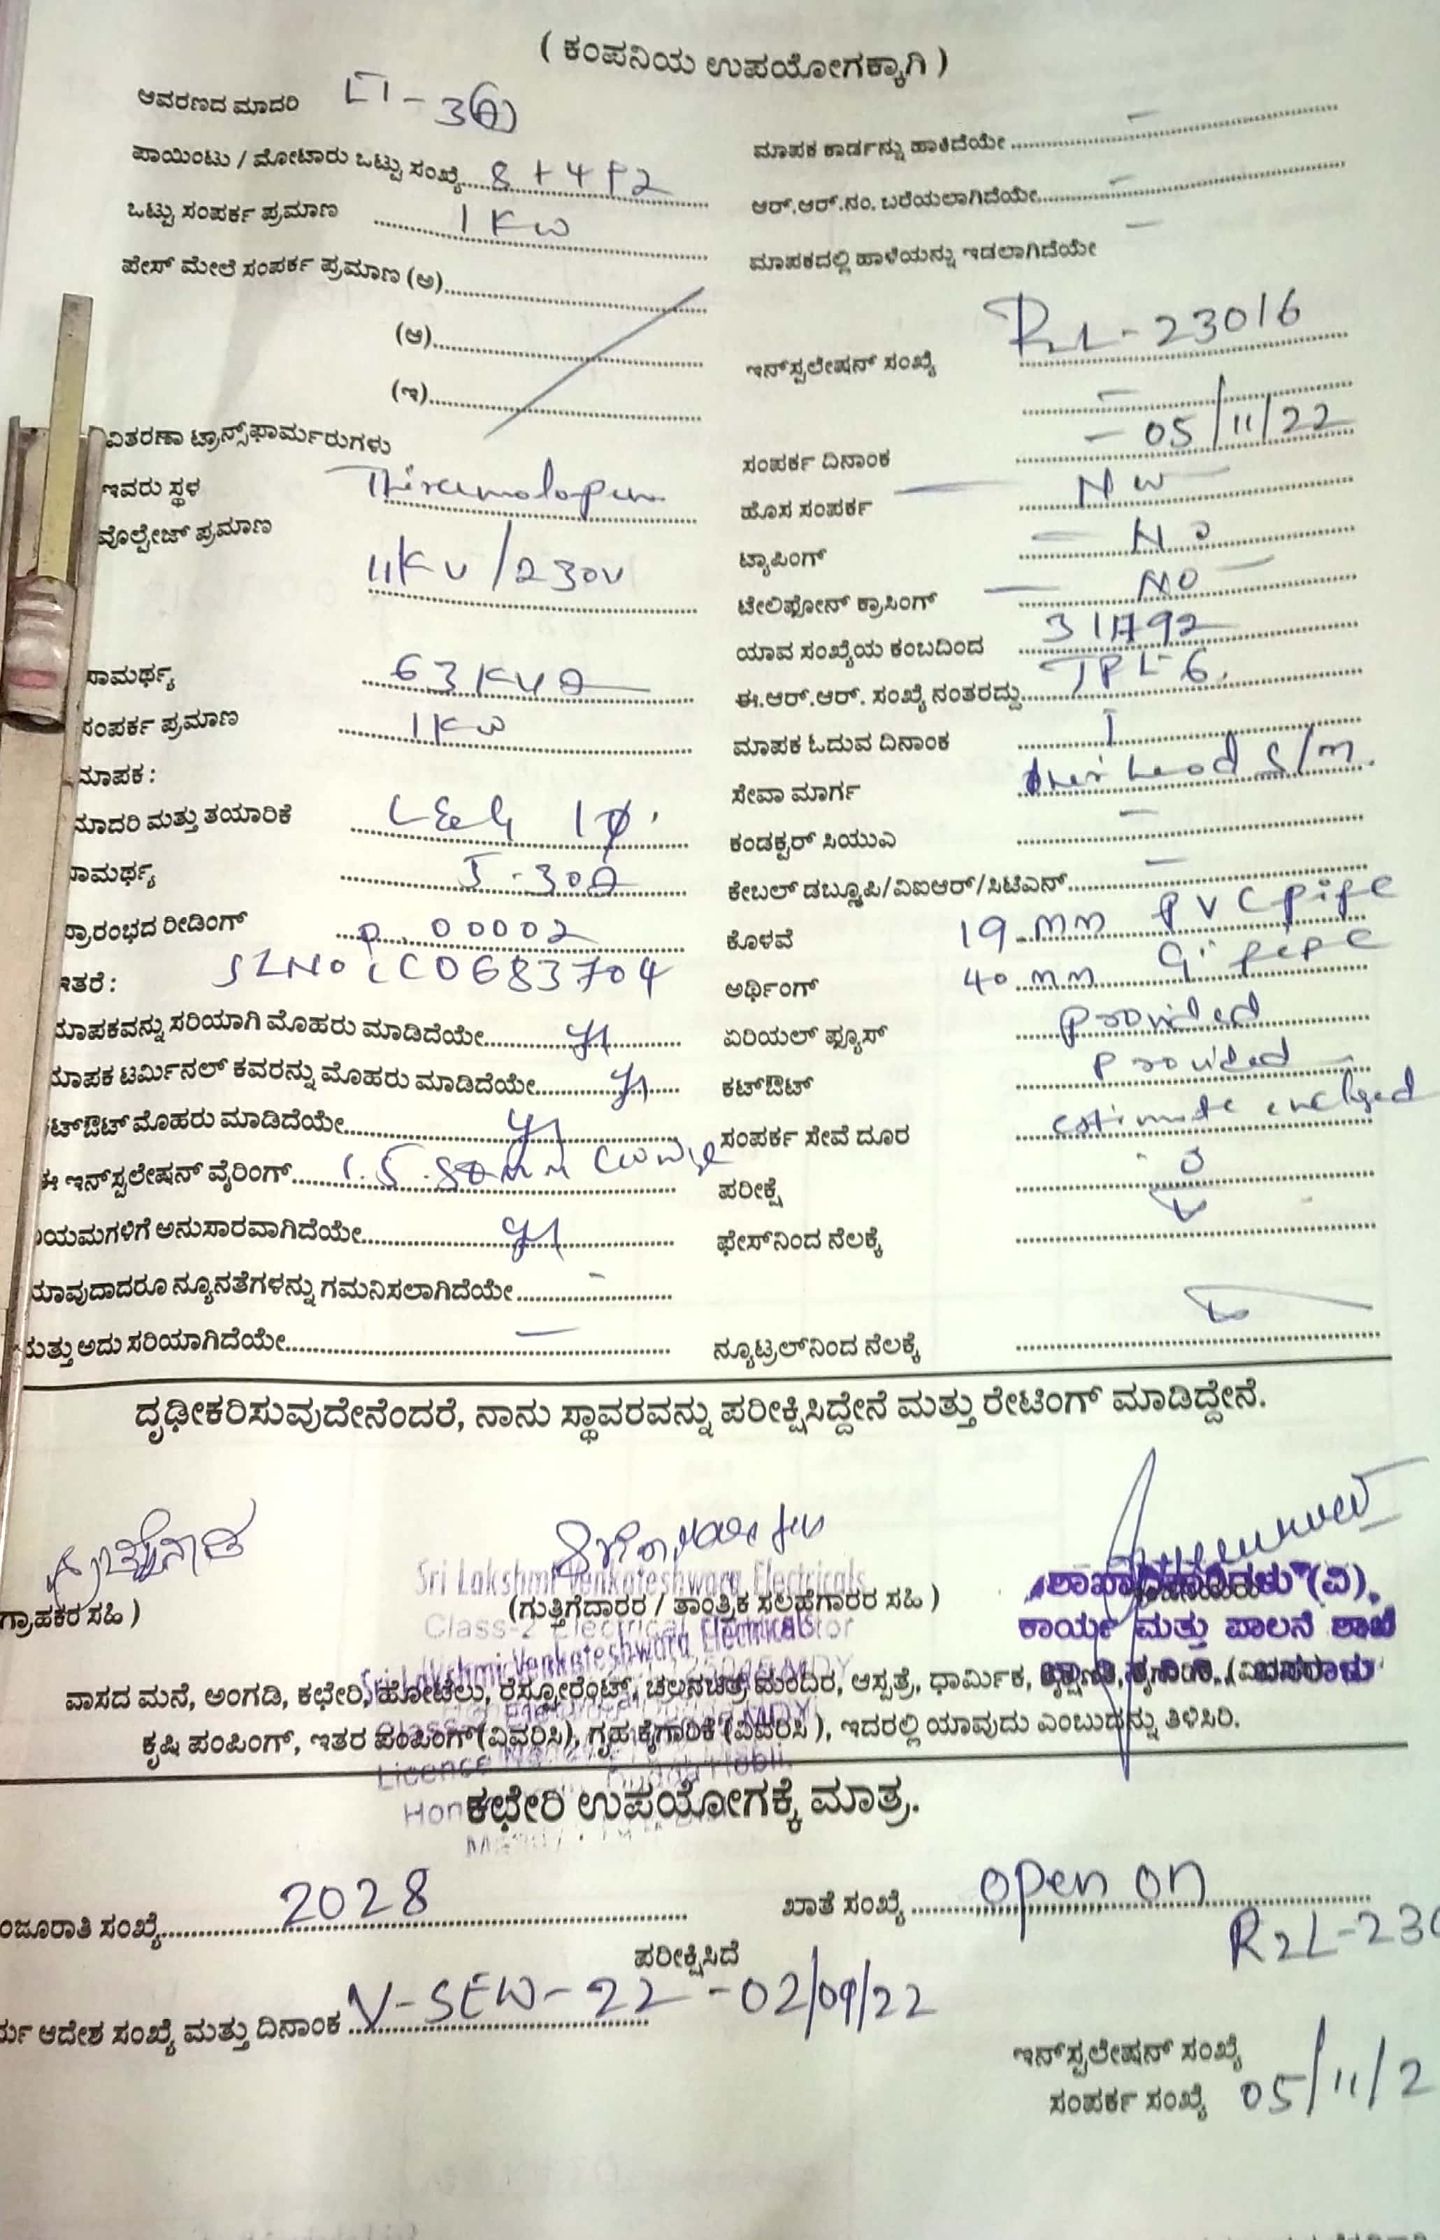 ( ಕಂಪನಿಯ ಉಪಯೋಗಕ್ಕಾಗಿ )
ಆವರಣದ ಮಾದರಿ LT-3(A)
ಪಾಯಿಂಟು / ಮೋಟಾರು ಒಟ್ಟು ಸಂಖ್ಯೆ 8+4P2
ಒಟ್ಟು ಸಂಪರ್ಕ ಪ್ರಮಾಣ 1KW
ಪೇಸ್ ಮೇಲೆ ಸಂಪರ್ಕ ಪ್ರಮಾಣ (ಅ)
(ಆ)
(ಇ)
ವಿತರಣಾ ಟ್ರಾನ್ಸ್‌ಫಾರ್ಮರುಗಳು
ಇವರು ಸ್ಥಳ
ವೊಲ್ಟೇಜ್ ಪ್ರಮಾಣ 11KV/230V
ಸಾಮರ್ಥ್ಯ 63KVA
ಸಂಪರ್ಕ ಪ್ರಮಾಣ 1KW
ಮಾಪಕ :
ಮಾದರಿ ಮತ್ತು ತಯಾರಿಕೆ L&G 1φ
ಸಾಮರ್ಥ್ಯ 5-30A
ಪ್ರಾರಂಭದ ರೀಡಿಂಗ್ 0.00002
ಇತರೆ : SLNO CO683704
ಮಾಪಕವನ್ನು ಸರಿಯಾಗಿ ಮೊಹರು ಮಾಡಿದೆಯೇ
ಮಾಪಕ ಟರ್ಮಿನಲ್ ಕವರನ್ನು ಮೊಹರು ಮಾಡಿದೆಯೇ
ಕಟ್‌ಔಟ್ ಮೊಹರು ಮಾಡಿದೆಯೇ
ಈ ಇನ್‌ಸ್ಟಲೇಷನ್ ವೈರಿಂಗ್ 1.5
ನಿಯಮಗಳಿಗೆ ಅನುಸಾರವಾಗಿದೆಯೇ
ಯಾವುದಾದರೂ ನ್ಯೂನತೆಗಳನ್ನು ಗಮನಿಸಲಾಗಿದೆಯೇ -
ಮತ್ತು ಅದು ಸರಿಯಾಗಿದೆಯೇ -
ಮಾಪಕ ಕಾರ್ಡನ್ನು ಹಾಕಿದೆಯೇ -
ಆರ್.ಆರ್.ನಂ. ಬರೆಯಲಾಗಿದೆಯೇ -
ಮಾಪಕದಲ್ಲಿ ಹಾಳೆಯನ್ನು ಇಡಲಾಗಿದೆಯೇ -
ಇನ್‌ಸ್ಟಲೇಷನ್ ಸಂಖ್ಯೆ R2L-23016
ಸಂಪರ್ಕ ದಿನಾಂಕ - 05/11/22
ಹೊಸ ಸಂಪರ್ಕ
ಟ್ಯಾಪಿಂಗ್ - NO
ಟೇಲಿಫೋನ್ ಕ್ರಾಸಿಂಗ್ - NO -
ಯಾವ ಸಂಖ್ಯೆಯ ಕಂಬದಿಂದ
ಈ.ಆರ್.ಆರ್. ಸಂಖ್ಯೆ ನಂತರದ್ದು TPL-6
ಮಾಪಕ ಓದುವ ದಿನಾಂಕ I
ಸೇವಾ ಮಾರ್ಗ over head S/m.
ಕಂಡಕ್ಟರ್ ಸಿಯುಎ -
ಕೇಬಲ್ ಡಬ್ಲ್ಯೂಪಿ/ವಿಐಆರ್/ಸಿಟಿಎನ್ -
ಕೊಳವೆ 19 mm PVC pipe
ಅರ್ಥಿಂಗ್ 40 mm GI pipe
ಏರಿಯಲ್ ಫ್ಯೂಸ್ provided
ಕಟ್‌ಔಟ್ provided
ಸಂಪರ್ಕ ಸೇವೆ ದೂರ estimate enclosed
ಪರೀಕ್ಷೆ
ಫೇಸ್‌ನಿಂದ ನೆಲಕ್ಕೆ
ನ್ಯೂಟ್ರಲ್‌ನಿಂದ ನೆಲಕ್ಕೆ
ದೃಢೀಕರಿಸುವುದೇನೆಂದರೆ, ನಾನು ಸ್ಥಾವರವನ್ನು ಪರೀಕ್ಷಿಸಿದ್ದೇನೆ ಮತ್ತು ರೇಟಿಂಗ್ ಮಾಡಿದ್ದೇನೆ.
Sri Lakshmi Venkateshwara Electricals
ಗ್ರಾಹಕರ ಸಹಿ ) (ಗುತ್ತಿಗೆದಾರರ / ತಾಂತ್ರಿಕ ಸಲಹೆಗಾರರ ಸಹಿ )
ಶಾಖಾಧಿಕಾರಿಗಳು (ವಿ),
ಕಾರ್ಯ ಮತ್ತು ಪಾಲನೆ ಶಾಖೆ
Sri Lakshmi Venkateshwara Electricals
ವಾಸದ ಮನೆ, ಅಂಗಡಿ, ಕಛೇರಿ, ಹೋಟೆಲು, ರೆಸ್ಟೋರೆಂಟ್, ಚಲನಚಿತ್ರ ಮಂದಿರ, ಆಸ್ಪತ್ರೆ, ಧಾರ್ಮಿಕ,
ಕೃಷಿ ಪಂಪಿಂಗ್, ಇತರ ಪಂಪಿಂಗ್(ವಿವರಿಸಿ), ಗೃಹ ಕೈಗಾರಿಕೆ (ವಿವರಿಸಿ ), ಇದರಲ್ಲಿ ಯಾವುದು ಎಂಬುದನ್ನು ತಿಳಿಸಿರಿ.
ಕಛೇರಿ ಉಪಯೋಗಕ್ಕೆ ಮಾತ್ರ.
ಂಜೂರಾತಿ ಸಂಖ್ಯೆ 2028
ಖಾತೆ ಸಂಖ್ಯೆ open on
R2L-230
ಪರೀಕ್ಷಿಸಿದೆ
ರ್ಯ ಆದೇಶ ಸಂಖ್ಯೆ ಮತ್ತು ದಿನಾಂಕ N-SEW-22-02/09/22
ಇನ್‌ಸ್ಟಲೇಷನ್ ಸಂಖ್ಯೆ
ಸಂಪರ್ಕ ಸಂಖ್ಯೆ 05/11/2